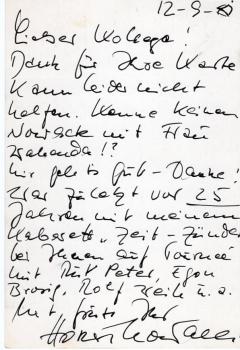 12-9-
Lieber Kollege!
Dank für Ihre Karte
Kann leider nicht
helfen. Kenne keinen
mit Frau
!?
Mir geht es gut - Danke!
War zuletzt vor 25
Jahren mit meinem
Kabarett „Zeit-Zünder
bei Ihnen auf Tournée
mit Rut Peter, Egon
Brosig, Rolf u.a.
Mit Ihr
Horst